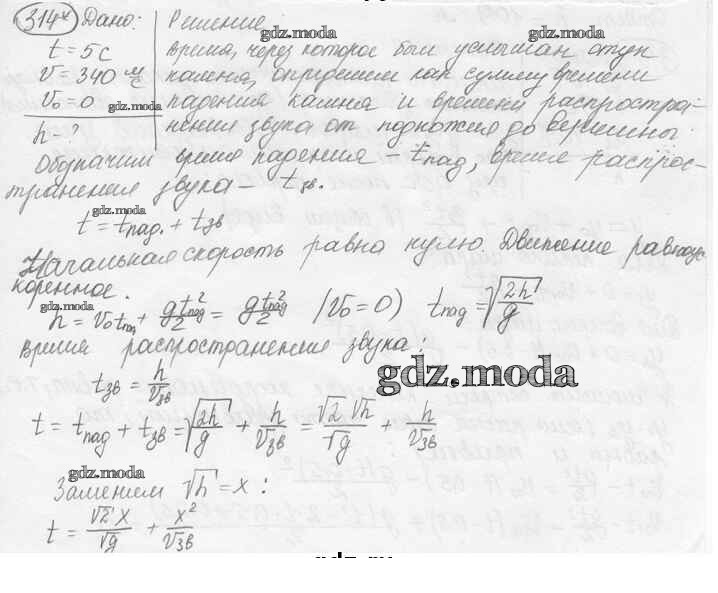 314ˣ Дано: Решение:
t = 5 с
V = 340 м/с
V₀ = 0
h - ?
Время, через которое был услышан стук
камена, определяем как сумму времени
падения камня и времени распростра-
нения звука от подножия до вершины.
Обозначим время падения tпад, время распрос-
транения звука – tзв.
t = tпад. + tзв
Начальная скорость равна нулю. Движение равноус
коренное.
h = V₀tпад + gt²пад/2 = gt²пад/2 (V₀ = 0) tпад = √(2h/g)
Время распространение звука:
tзв = h/Vзв
t = tпад + tзв = √(2h/g) + h/Vзв = √2 √h/√g + h/Vзв
Заменим √h = x:
t = √2 x/√g + x²/Vзв
gdz.moda
gdz.moda
gdz.moda
gdz.moda
gdz.moda
gdz.moda
gdz.moda